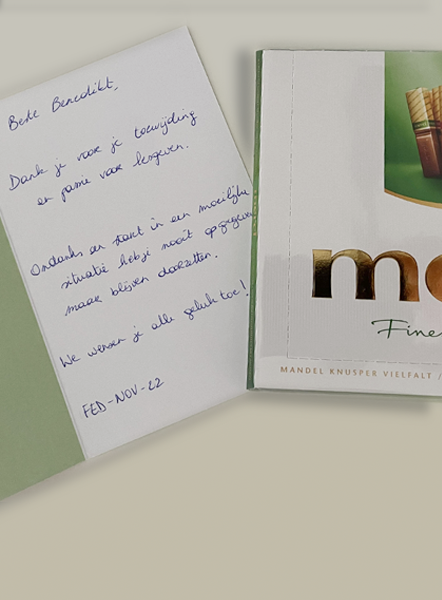 Beste Benedikt,
Dank je voor je toewijding
en passie voor lesgeven.
Ondanks een start in een moeilijke
situatie heb je nooit opgegeven
maar blijven doorzetten.
We wensen je alle geluk toe!
FED-NOV-22
me
Fine
MANDEL KNUSPER VIELFALT /